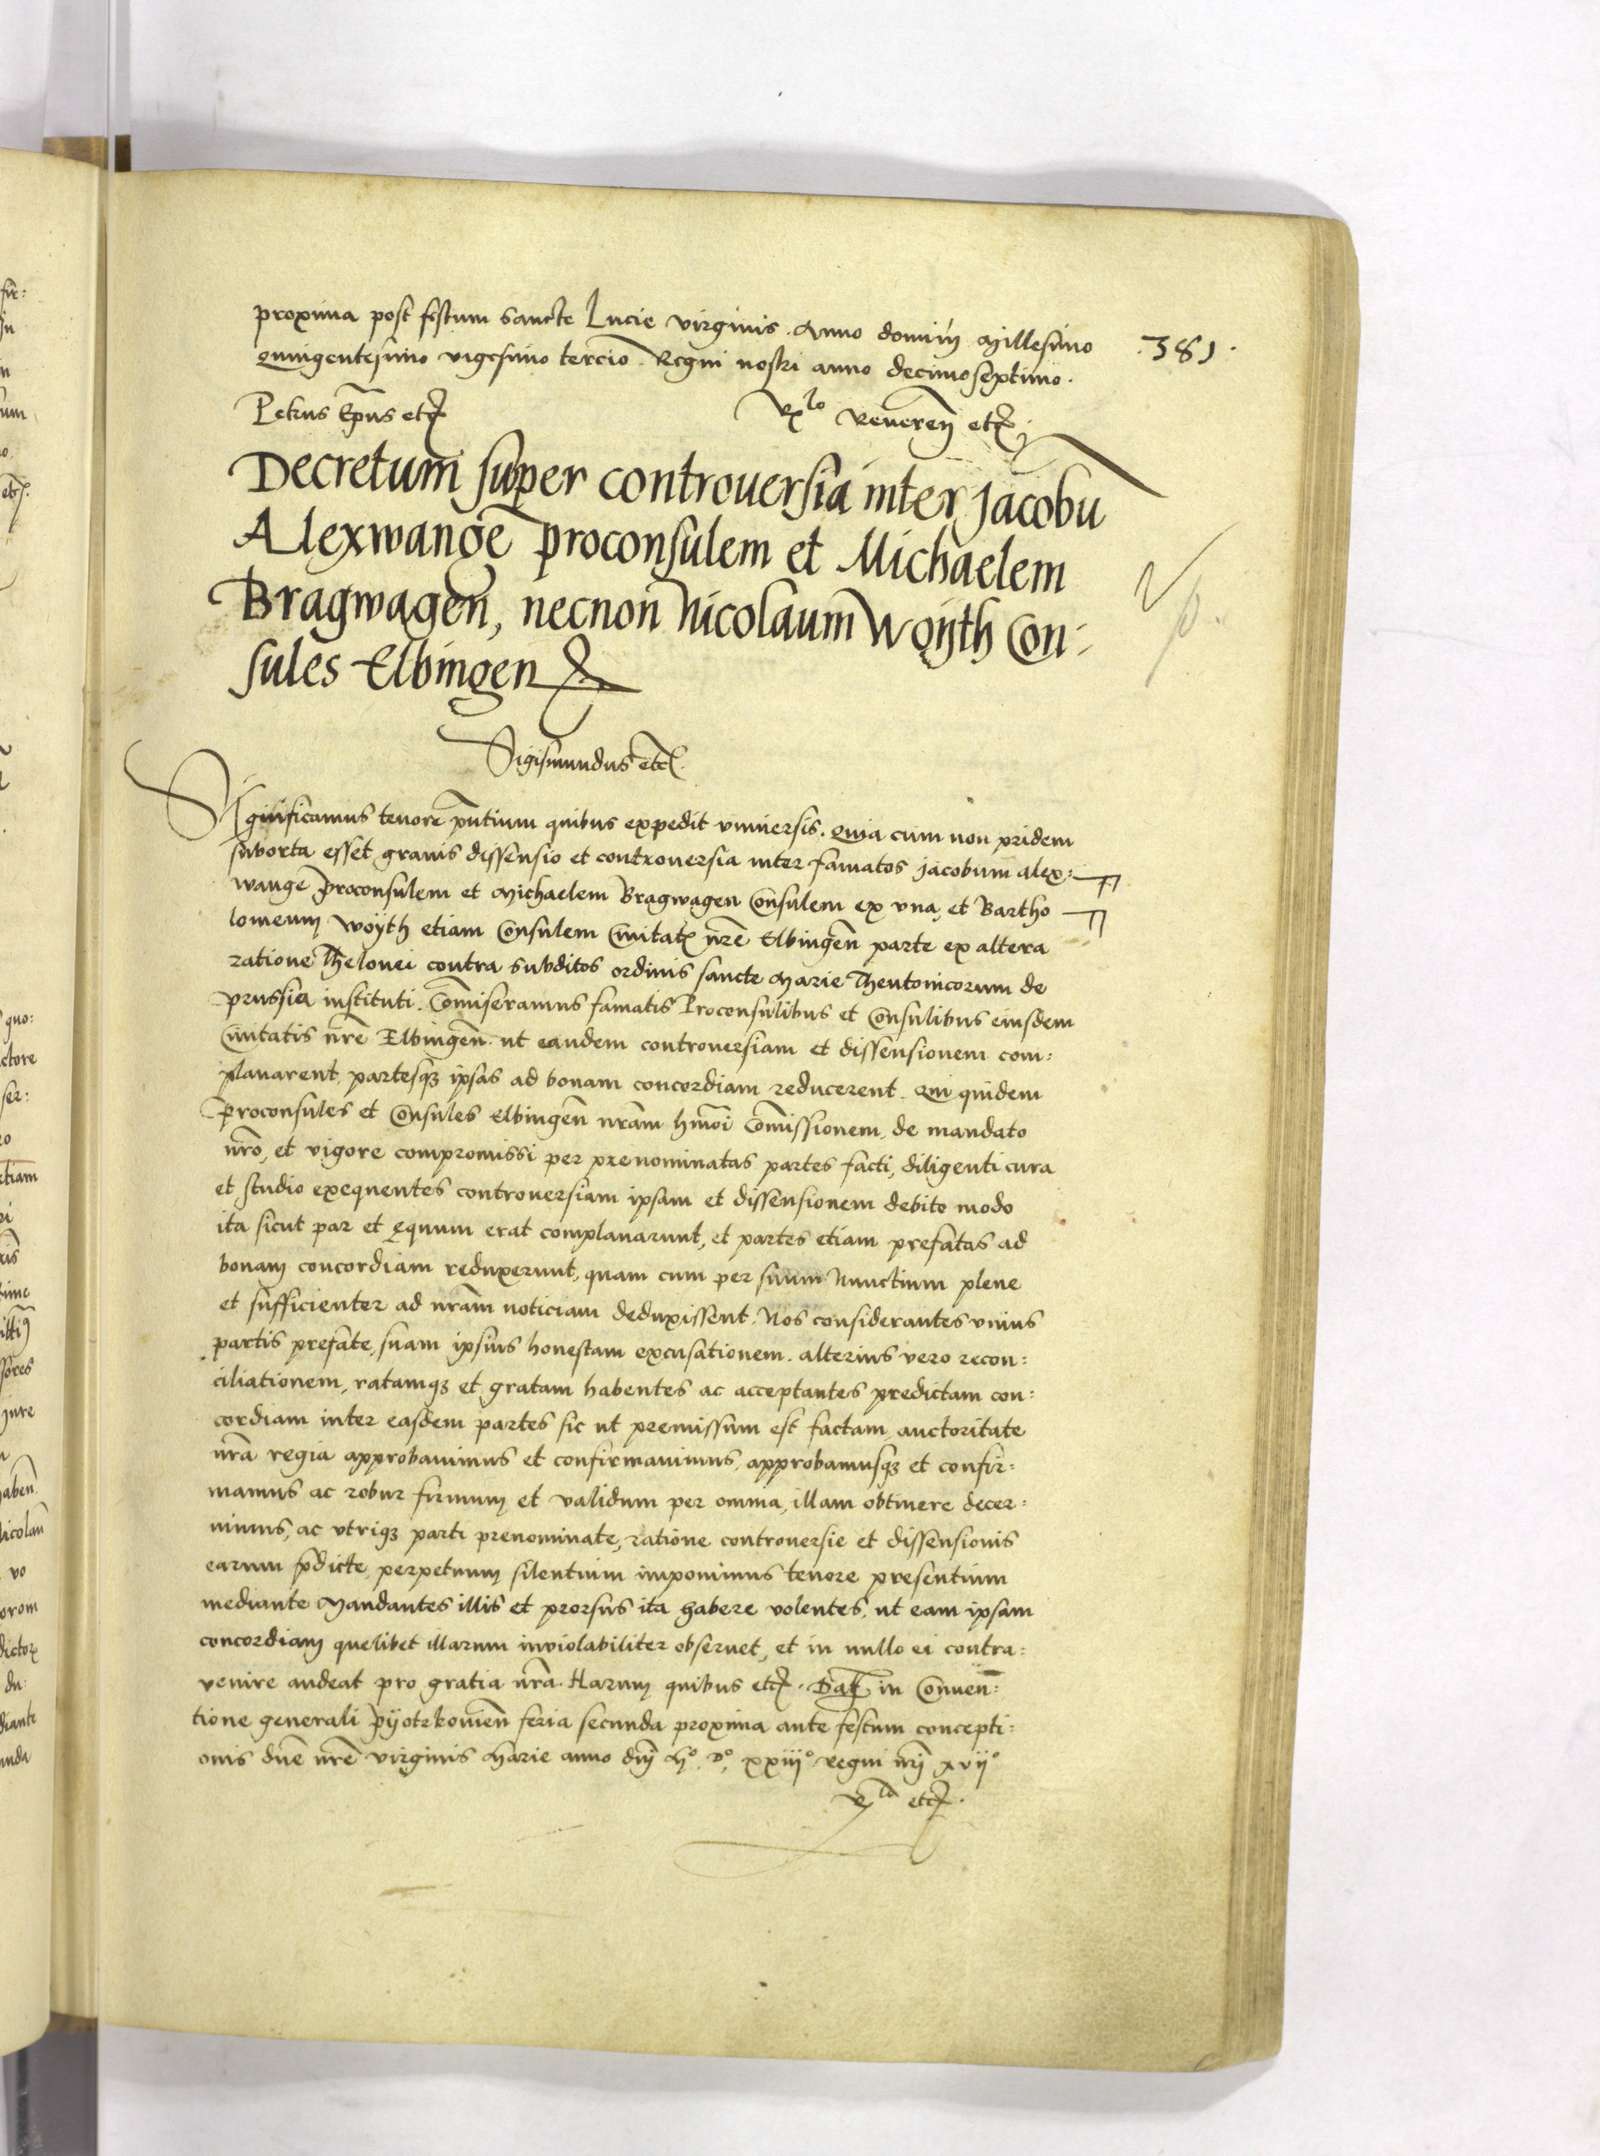 proxima post festum Sancte Lucie virginis. Anno domini Millesimo
.381.
Quingentesimo vigesimo tercio. Regni nostri anno decimoseptimo.
Petrus Ep̄us etc̃
R^lo Reuereñ etc̃
Decretum super controuersia inter Jacobu
Alexwange proconsulem et Michaelem
Bragwagen, necnon Nicolaum Woyth Con:
sules Elbingen
Sigismundus etc̃.
Significamus tenore p̄ntium quibus expedit vniuersis. Quia cum non pridem
suborta esset grauis dissensio et controuersia inter famatos Jacobum Alex:
wange proconsulem et Michaelem Bragwagen Consulem ex vna, et Bartho
lomeum Woyth etiam Consulem Ciuitat̃ nr̄e Elbingeñ parte ex altera
ratione Thelonei contra subditos ordinis sancte Marie Theutonicorum de
prussia instituti. Com̄iseramus famatis Proconsulibus et Consulibus eiusdem
Ciuitatis nr̄e Elbingeñ. ut eandem controuersiam et dissensionem com:
planarent, partesqꝫ ipsas ad bonam concordiam reducerent. Qui quidem
proconsules et Consules Elbingeñ nr̄am hm̄oi Com̄issionem, de mandato
nr̄o, et vigore compromissi per prenominatas partes facti, diligenti cura
et studio exequentes controuersiam ipsam et dissensionem debito modo
ita sicut par et equum erat complanarunt, et partes etiam prefatas ad
bonam concordiam reduxerunt, quam cum per suum Nunctium plene
et sufficienter ad nr̄am noticiam deduxissent. Nos considerantes vnius
partis prefate, suam ipsius honestam excusationem. alterius vero recon:
ciliationem, ratamqꝫ et gratam habentes ac acceptantes predictam con:
cordiam inter easdem partes sic ut premissum est factam, auctoritate
nr̄a regia approbauimus et confirmauimus, approbamusqꝫ et confir:
mamus ac robur firmum et validum per omnia, illam obtinere decer:
nimus, ac vtriqꝫ parti prenominate, ratione controuersie et dissensionis
earum p̄dicte, perpetuum silentium imponimus tenore presentium
mediante Mandantes illis et prorsus ita habere volentes, ut eam ipsam
concordiam quelibet illarum inviolabiliter obseruet, et in nullo ei contra:
venire audeat pro gratia nr̄a. Harum quibus etc̃. Dat̃ in Conuen:
tione generali Pyotrkouieñ feria secunda proxima ante festum concepti:
onis dn̄e nr̄e virginis Marie anno dn̄j M° D° xxiij° Regni nr̄j xvij°
R^la etc̃.